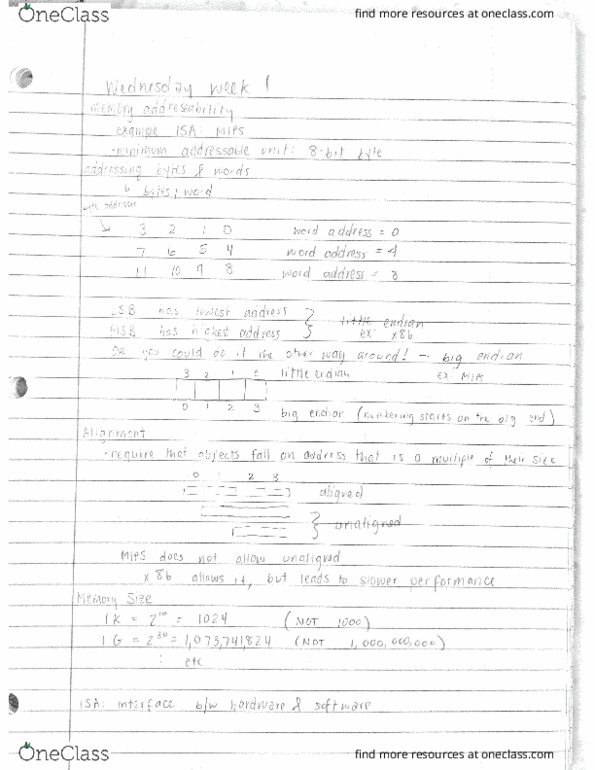 OneClass
find more resources at oneclass.com
Wednesday week 1
memory addressability
example ISA: MIPS
-minimum addressable unit: 8-bit byte
addressing bytes & words
bytes/word
byte addresses
3 2 1 0 word address = 0
7 6 5 4 word address = 4
11 10 9 8 word address = 8
LSB has lowest address
little endian
MSB has highest address
ex: x86
or you could do it the other way around! - big endian
3 2 1 0 little endian
ex: MIPS
0 1 2 3 big endian (numbering starts on the big end)
Alignment
-require that objects fall on address that is a multiple of their size
0 1 2 3
aligned
unaligned
MIPS does not allow unaligned
x86 allows it, but leads to slower performance
Memory Size
1K = 2^10 = 1024 (NOT 1000)
1G = 2^30 = 1,073,741,824 (NOT 1,000,000,000)
: etc
ISA: interface b/w hardware & software
OneClass
find more resources at oneclass.com